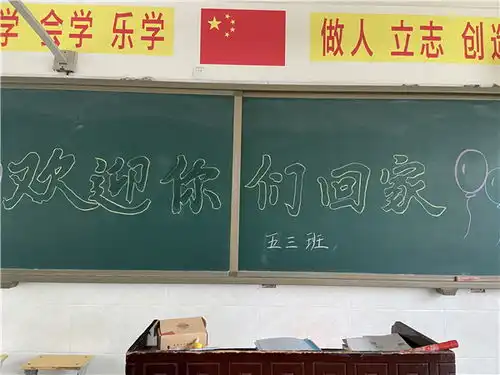 学 会学 乐学
做人 立志 创造
欢迎你们回家
五三班